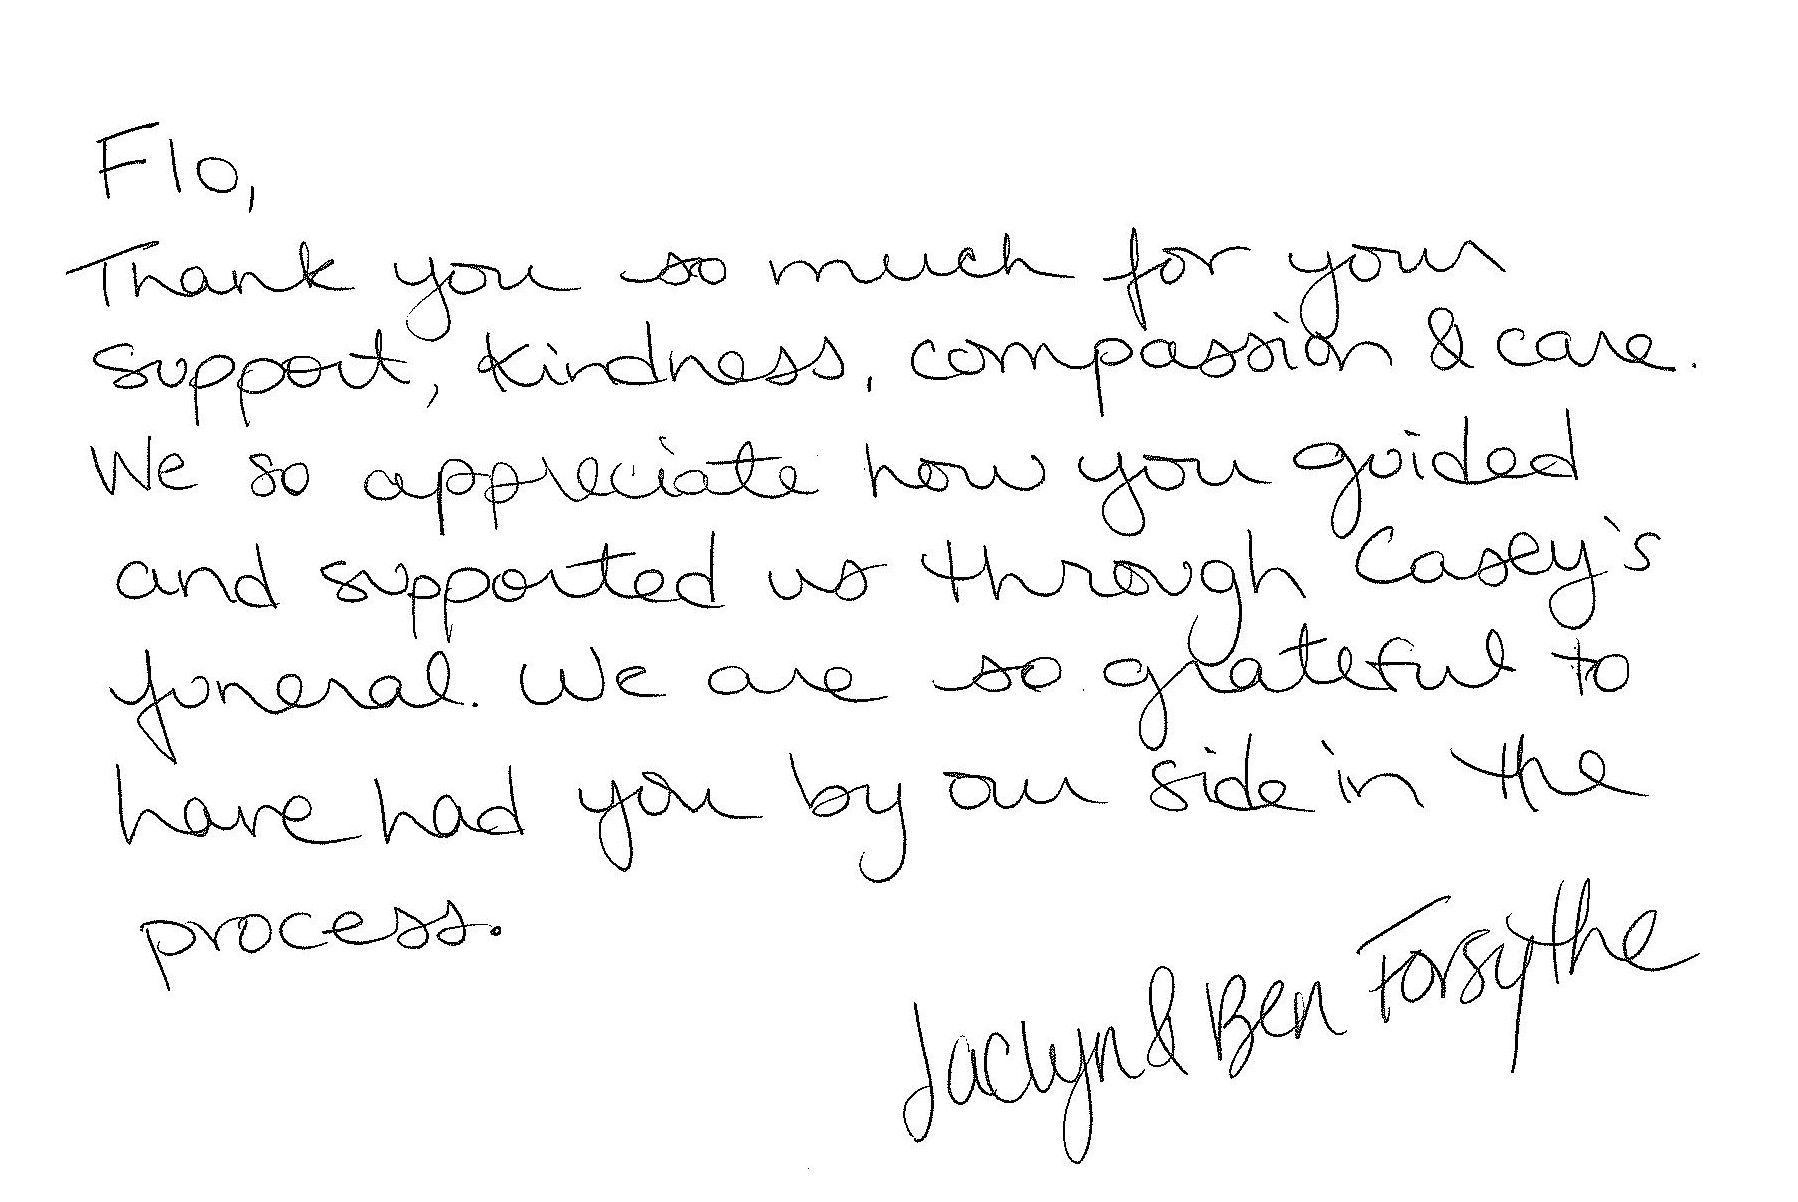 Flo,
Thank you so much for your
support, kindness, compassion & care.
We so appreciate how you guided
and supported us through Casey's
funeral. We are so grateful to
have had you by our side in the
process.
Jaclyn & Ben Forsythe